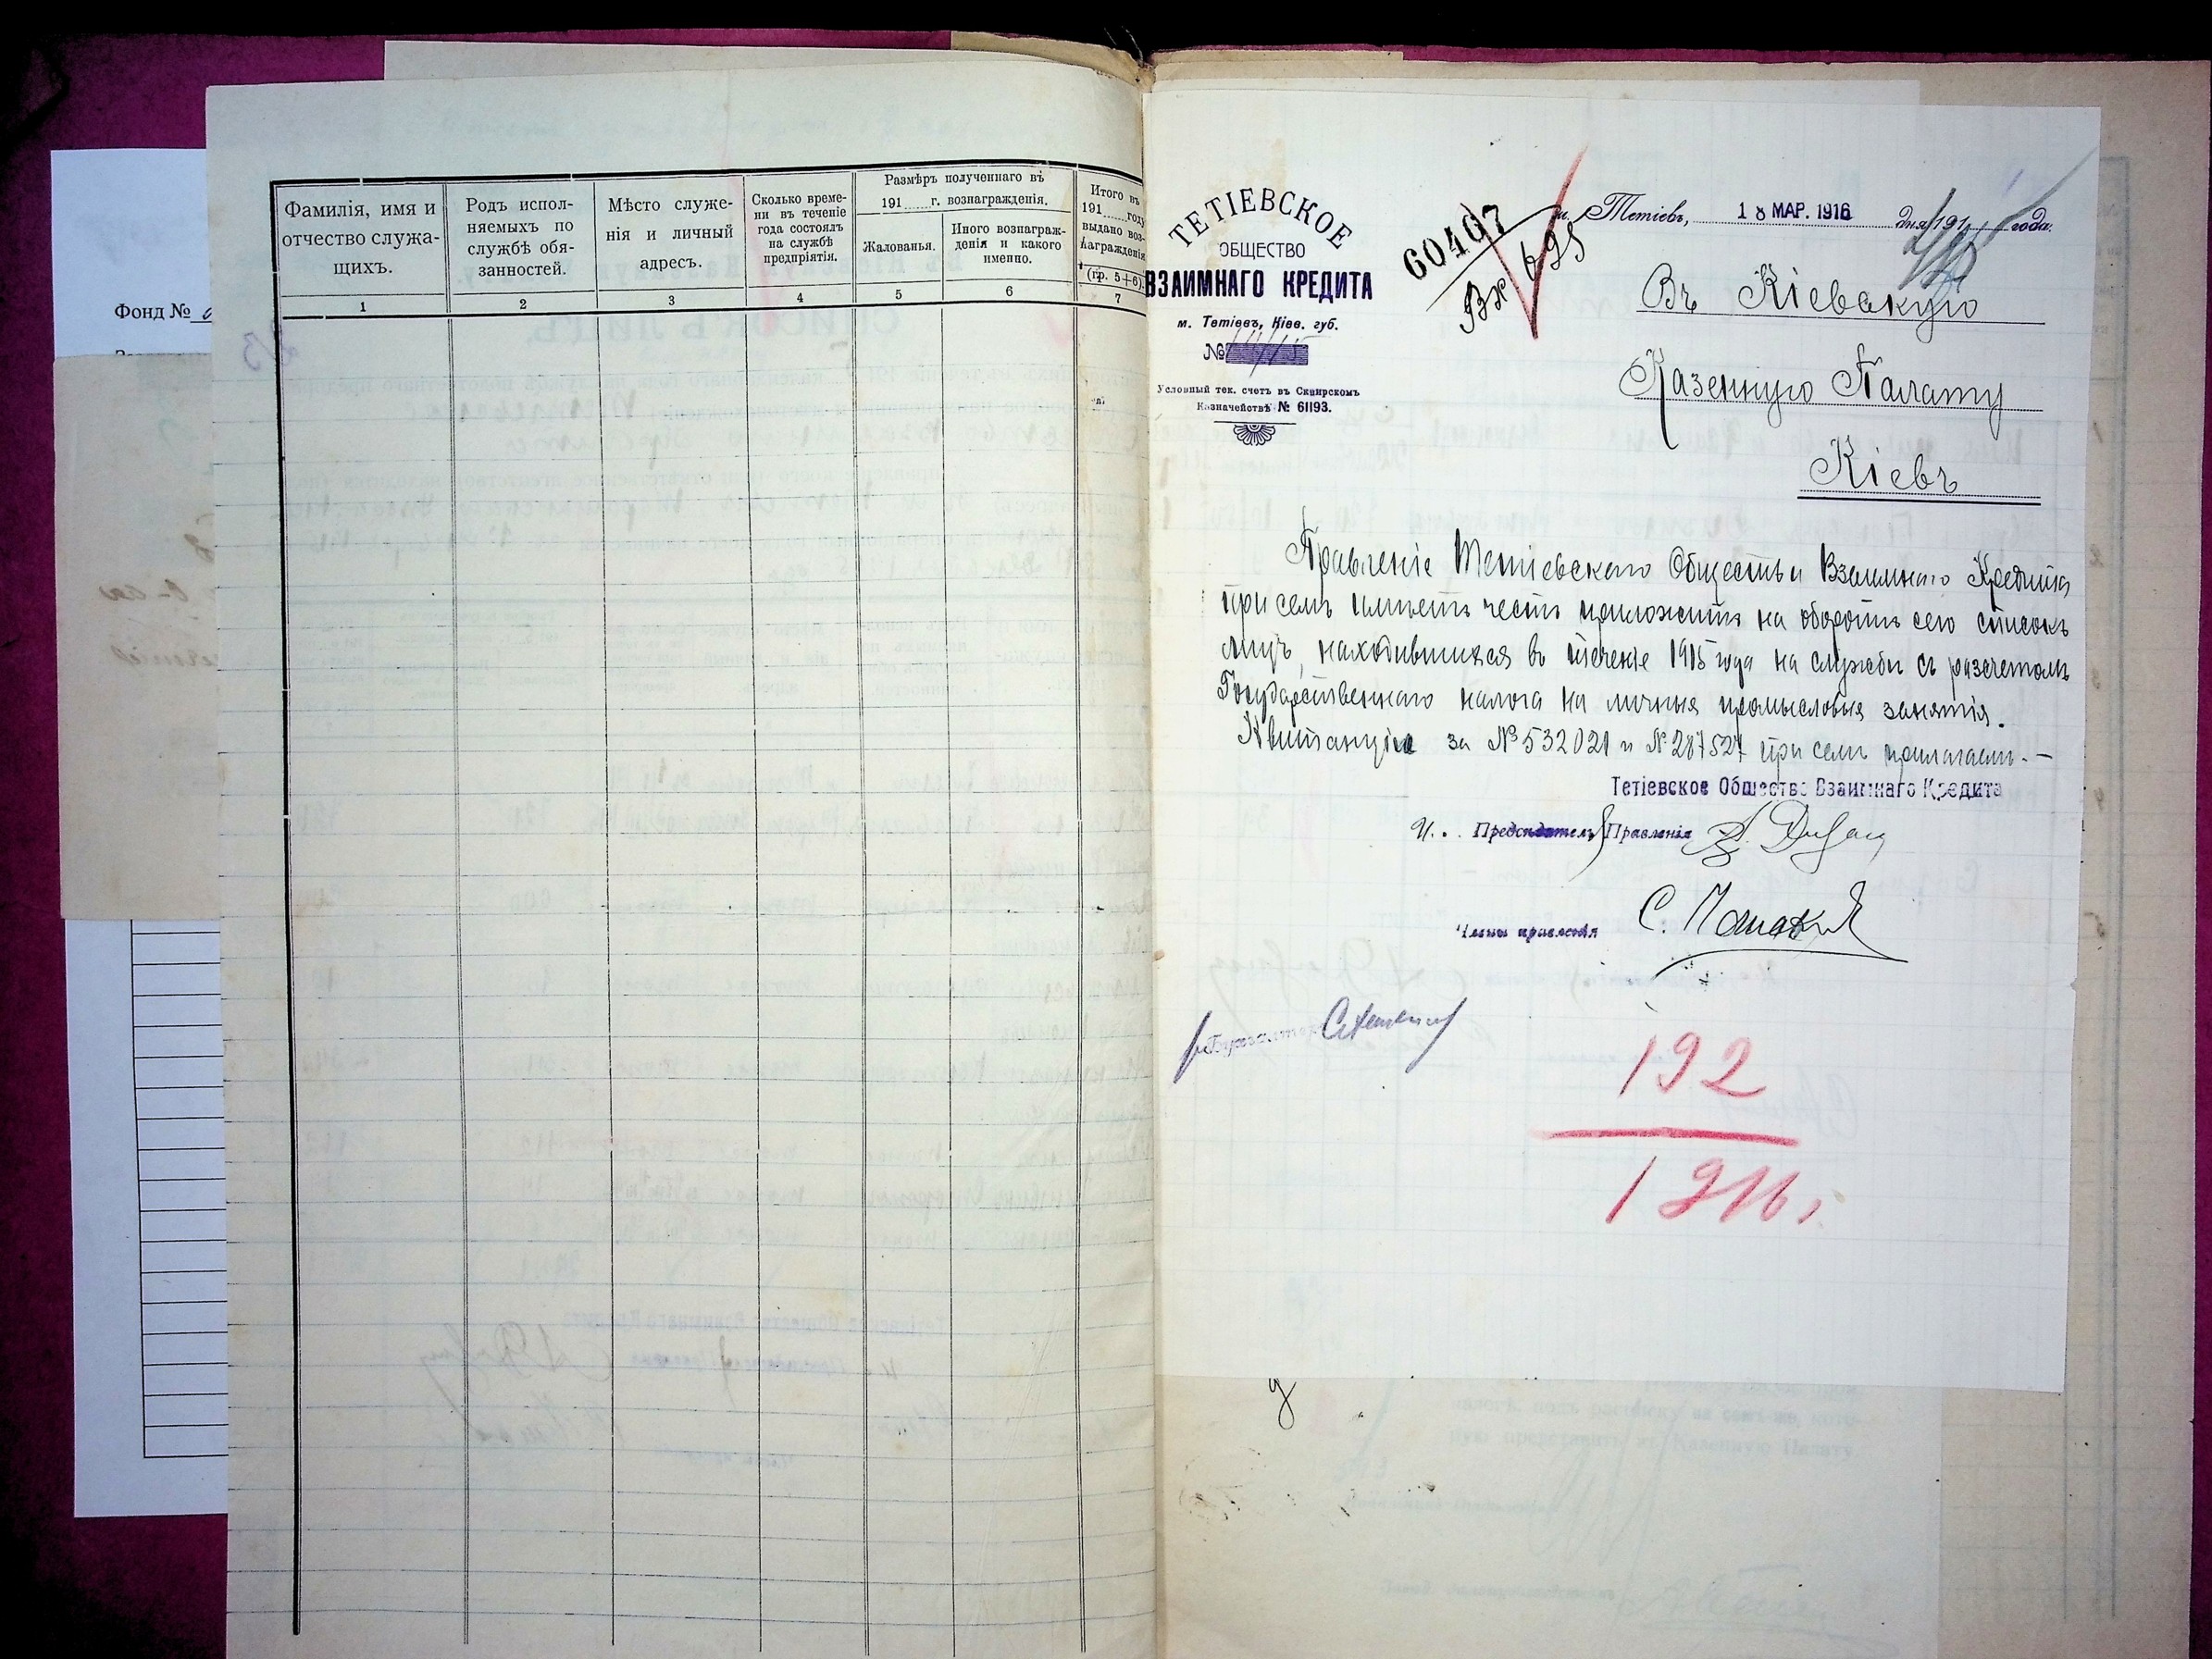 Фонд №
Фамилія, имя и
отчество служа-
щихъ.
Родъ испол-
няемыхъ по
службѣ обя-
занностей.
Мѣсто служе-
нія и личный
адресъ.
Сколько време-
ни въ теченіе
года состоялъ
на службѣ
предпріятія.
Размѣръ полученнаго въ
191......г. вознагражденія.
Жалованья.
Иного вознаграж-
денія и какого
именно.
Итого въ
191......году
выдано воз-
награжденія
(гр. 5+6).
1 2 3 4 5 6 7
ТЕТІЕВСКОЕ
ОБЩЕСТВО
ВЗАИМНАГО КРЕДИТА
м. Тетіевъ, Кіев. губ.
№
Условный тек. счетъ въ Сквирскомъ
Казначействѣ № 61193.
60407
Вх 695
м. Тетіевъ, 18 МАР. 1916 дня 191 года.
Въ Кіевскую
Казенную Палату
Кіевъ
Правленіе Тетіевскаго Общества Взаимнаго Кредита
при семъ имѣетъ честь приложить на оборотѣ сего списокъ
лицъ, находившихся въ теченіе 1915 года на службѣ съ разсчетомъ
Государственнаго налога на личныя промысловыя занятія.
Квитанціи за № 532021 и № 287527 при семъ прилагаемъ. —
Тетіевское Общество Взаимнаго Кредита
И. . Предсѣдатель Правленія
Члены правленія
Бухгалтеръ
192
1916 г.